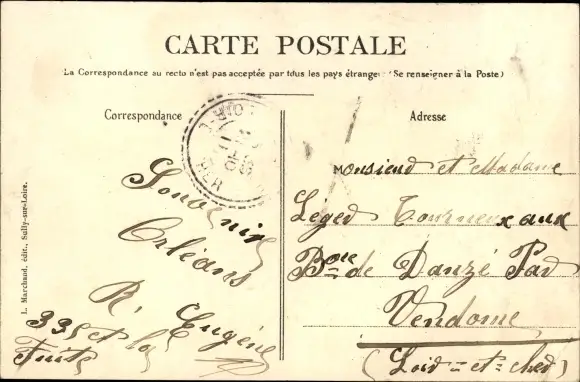 CARTE POSTALE
La Correspondance au recto n'est pas acceptée par tous les pays étranger (Se renseigner à la Poste)
Correspondance
Adresse
Souvenir
Orléans
R. Eugène
335 et la
Fuite
Monsieur et Madame
Léger Tourneux aux
Bouee de Danzé Par
Vendome
(Loir-et-cher)
L. Marchand, édit., Sully-sur-Loire.